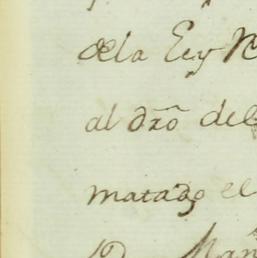 dela Ley R
al dro del
matado el
D. Man